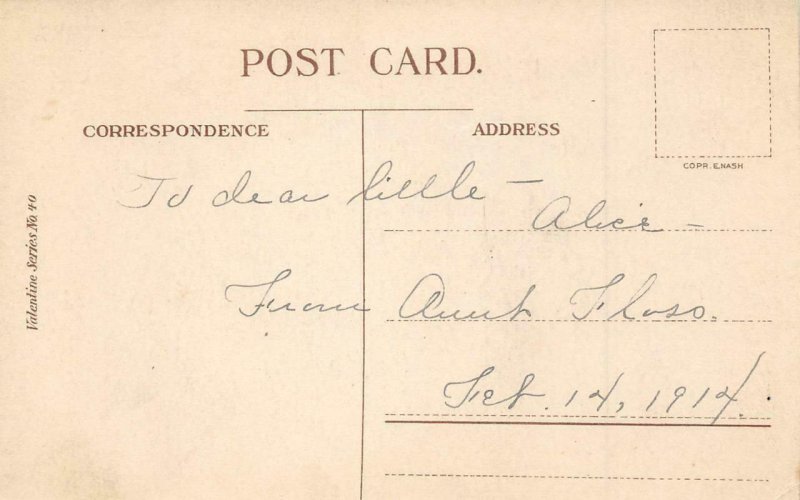 POST CARD.
CORRESPONDENCE
ADDRESS
COPR. E.NASH
Valentine Series No. 40
To dear little –
Alice –
From Aunt Floss.
Feb. 14, 1914.